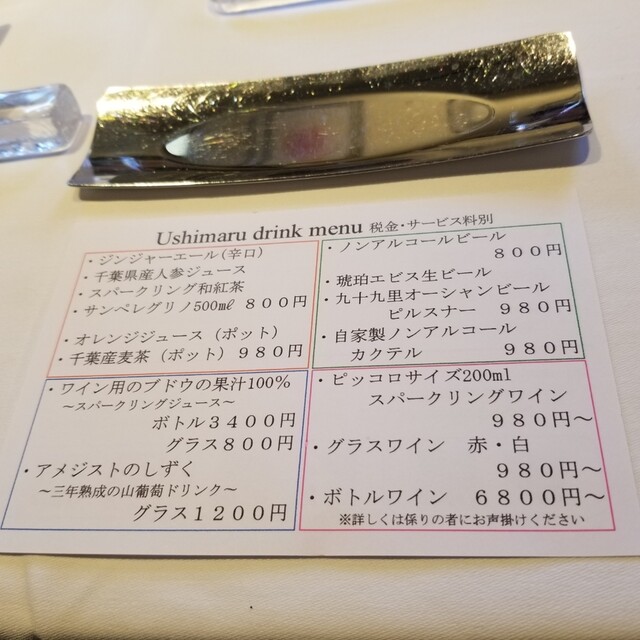 Ushimaru drink menu 税金・サービス料別
・ジンジャーエール(辛口)
・千葉県産人参ジュース
・スパークリング和紅茶
・サンペレグリノ500㎖ 800円
・オレンジジュース (ポット)
・千葉産麦茶 (ポット) 980円
・ノンアルコールビール
800円
・琥珀エビス生ビール
・九十九里オーシャンビール
ピルスナー 980円
・自家製ノンアルコール
カクテル 980円
・ワイン用のブドウの果汁100%
～スパークリングジュース～
ボトル3400円
グラス800円
・アメジストのしずく
～三年熟成の山葡萄ドリンク～
グラス1200円
・ピッコロサイズ200ml
スパークリングワイン
980円～
・グラスワイン 赤・白
980円～
・ボトルワイン 6800円～
※詳しくは係りの者にお声掛けください